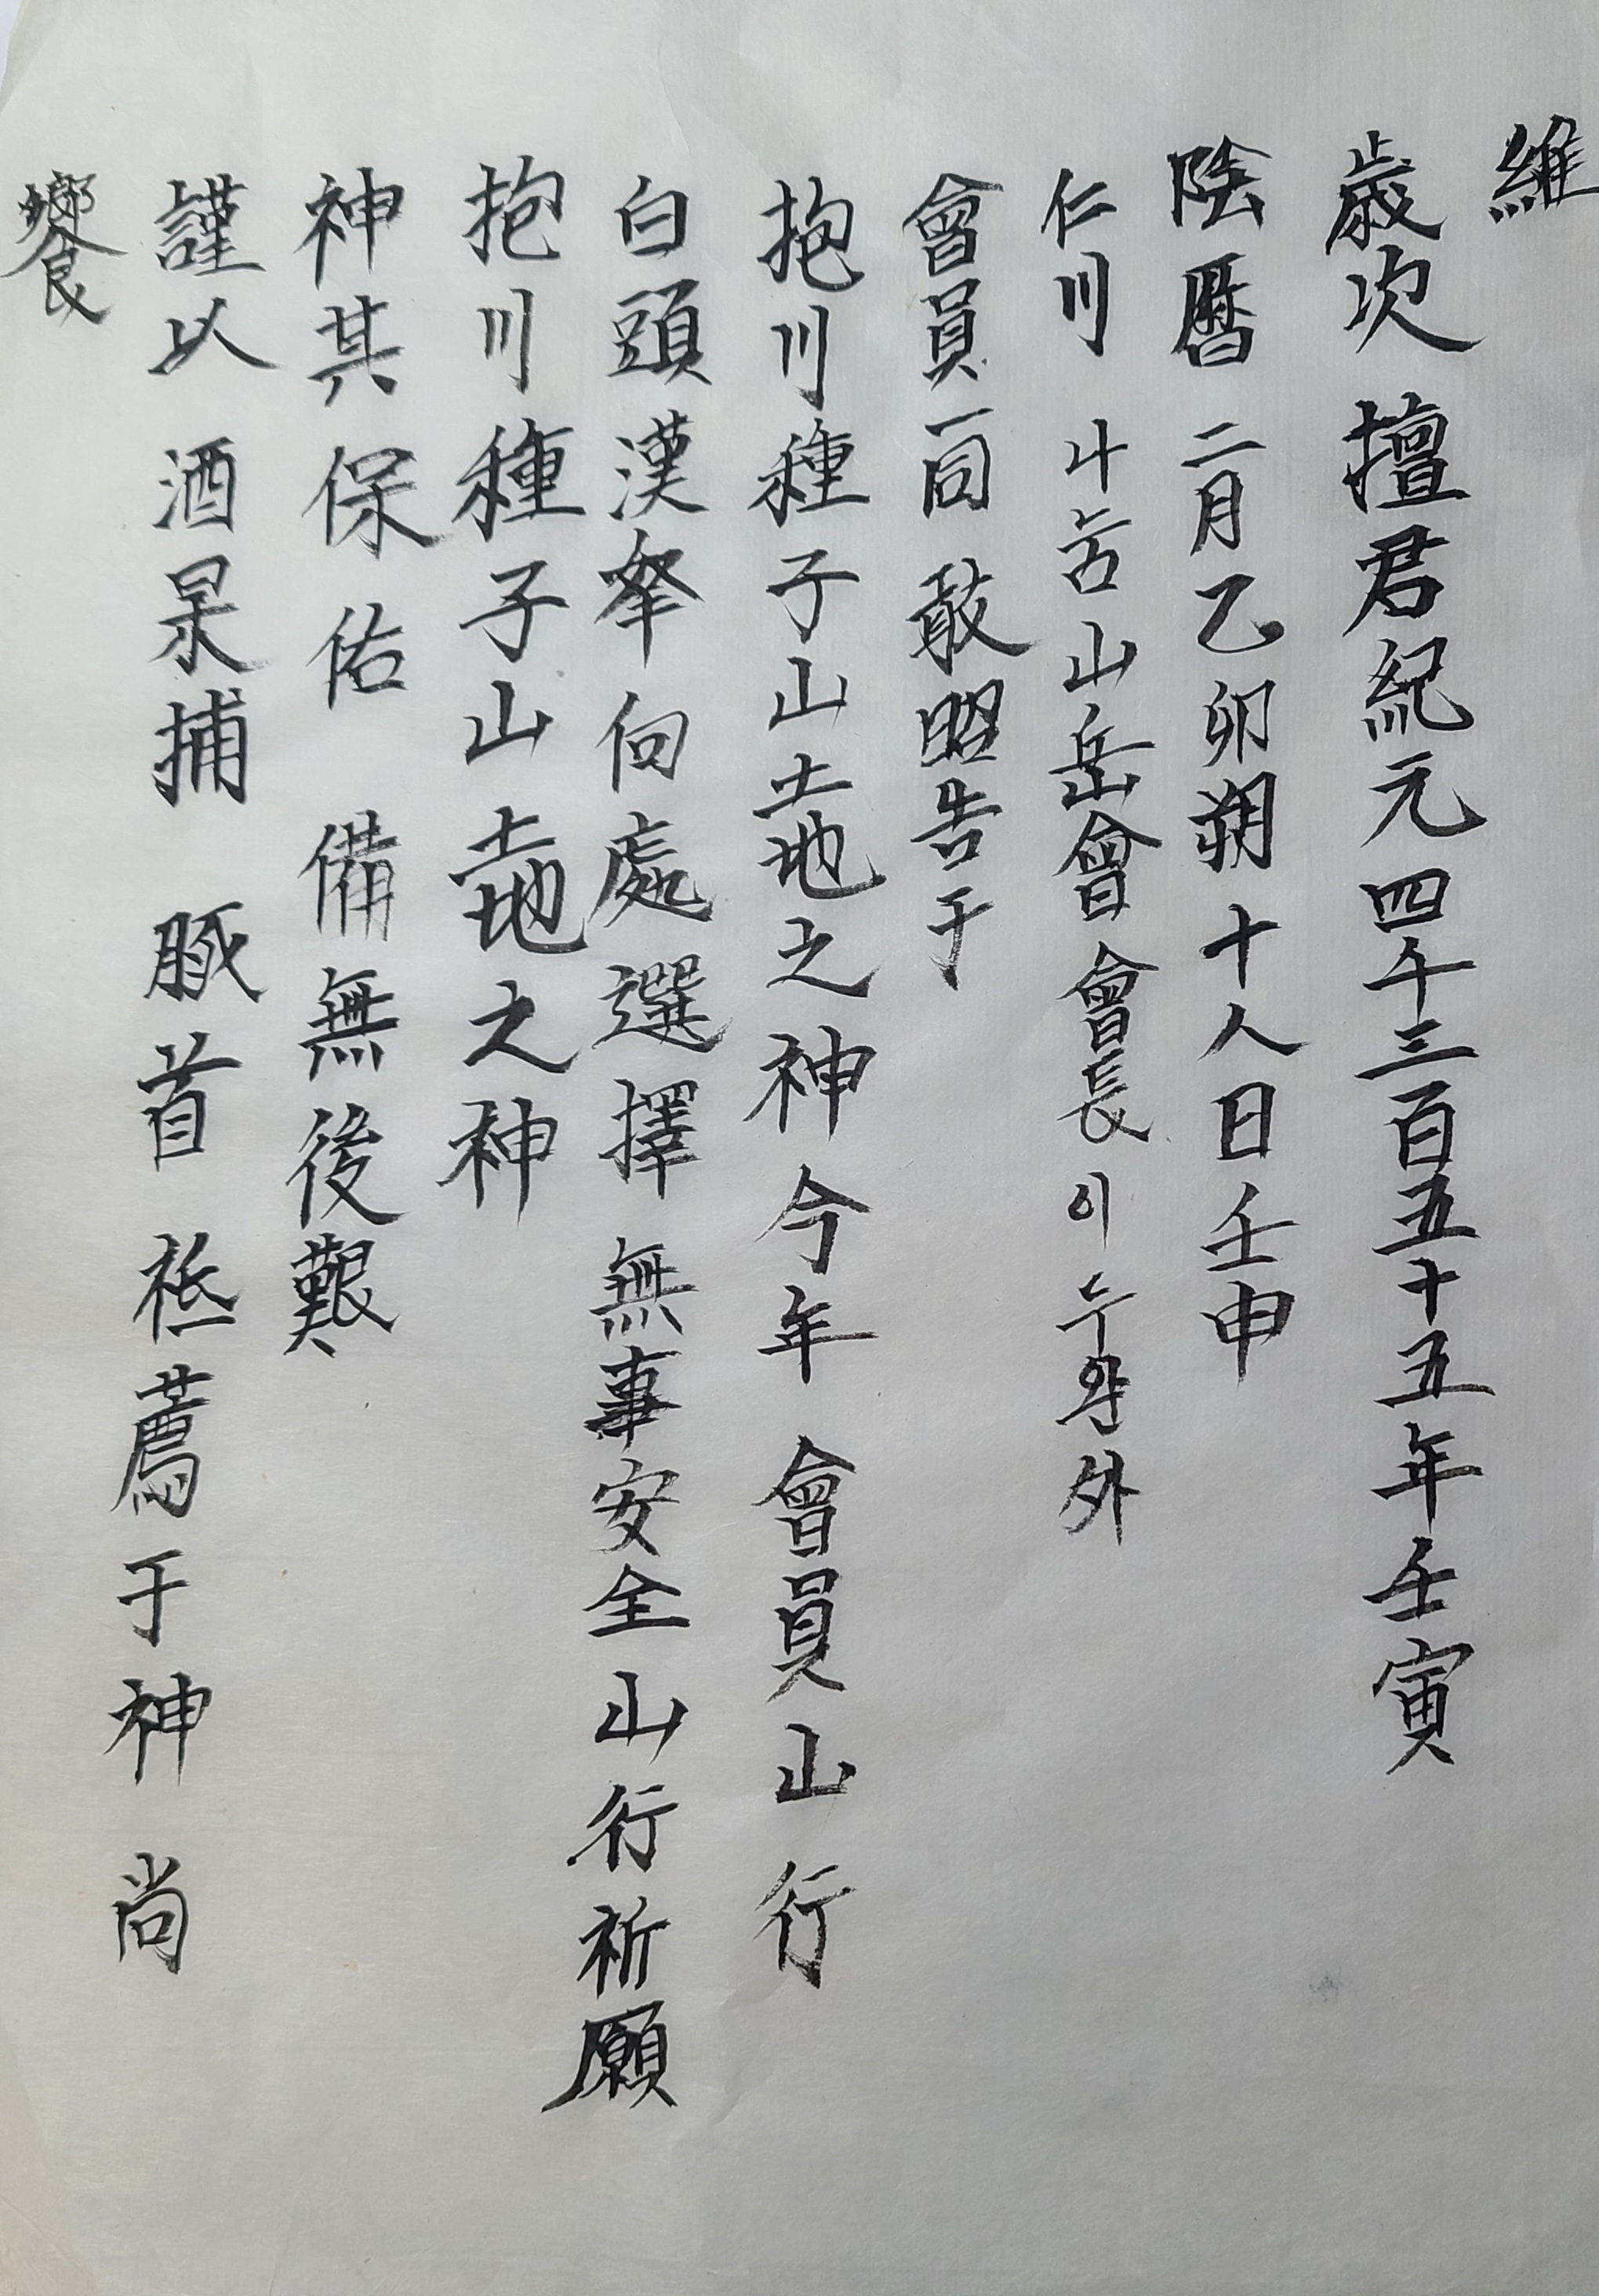 維
歲次 擅君紀元四千三百五十五年壬寅
陰曆 二月乙卯朔十八日壬申
仁川 山岳會 會長 이 外
會員一同 敢昭告于
抱川種子山土地之神 今年 會員山行
白頭漢拏 向處選擇 無事安全 山行祈願
抱川種子山土地之神
神其保佑 備無後艱
謹以 酒果捕 豚首 祗薦于神 尚
饗